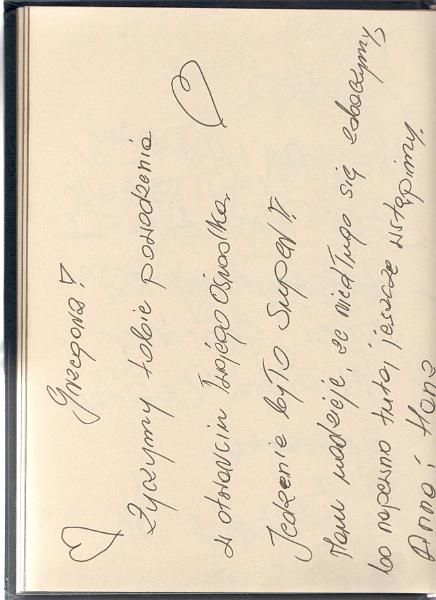 Grzegorz!
Życzymy tobie powodzenia
w otwarciu Twojego Ośrodka.
Jedzenie było Super!!
Mam nadzieję, że niedługo się zobaczymy,
bo napewno tutaj jeszcze wstąpimy.
Anna i Hans